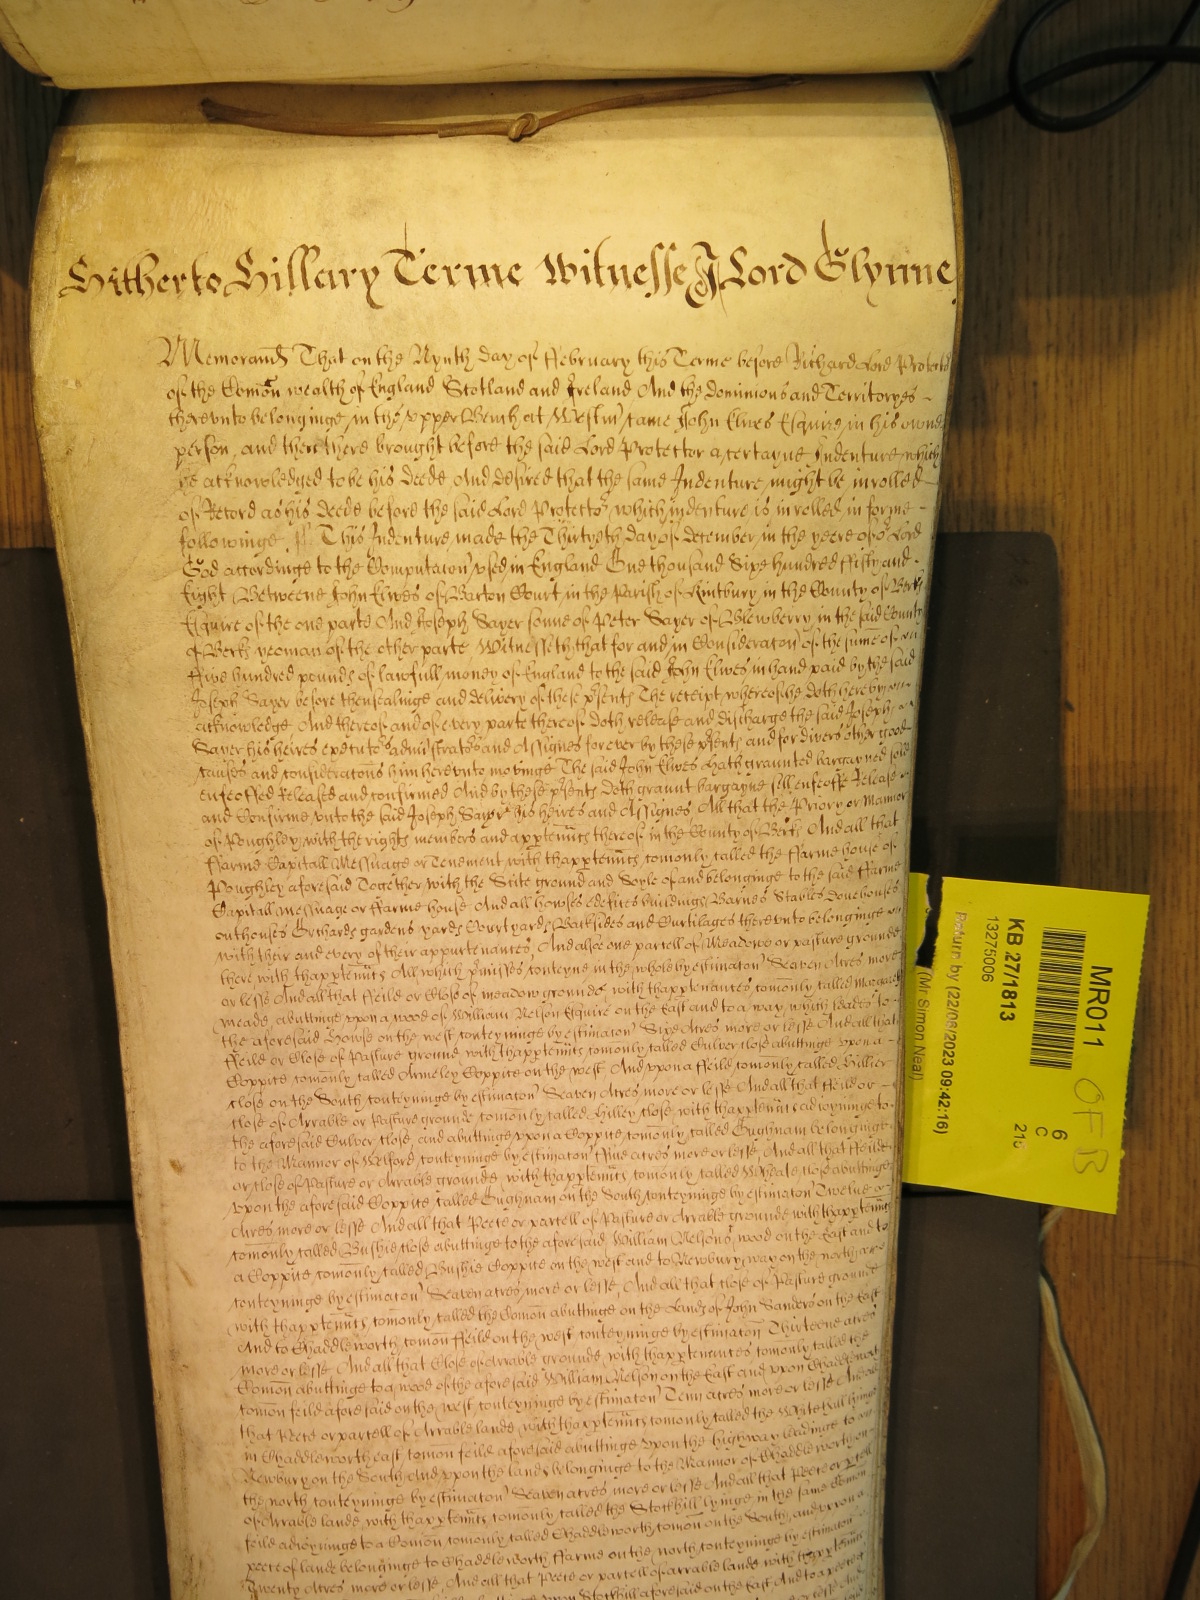 Hitherto Hillary Terme Witnesse J Lord Glynne
Memorand That on the Nynth day of ffebruary this Terme before Richard Lord Protector
of the Comon wealth of England Scotland and Ireland And the Dominions and Territoryes
therevnto belonginge in the vpper Bench at Westm came John Elwes Esquire in his owne
person and then there brought before the said Lord Protector a certayne Indenture which
he acknowledged to be his deede And desired that the same Indenture might be inrolled
of Record as his deede before the said Lord Protector which indenture is inrolled in forme
followinge This Indenture made the Thirtyth day of december in the yeere of or Lord
God accordinge to the Computacon vsed in England One thousand Sixe hundred ffifty and
Eight Betweene John Elwes of Barton Court in the Parish of Kintbury in the County of Berks
Esquire of the one parte And Joseph Sayer sonne of Peter Sayer of Blewberry in the said County
of Berks yeoman of the other parte Witnesseth that for and in Consideracon of the sume of
ffive hundred pounds of lawfull money of England to the said John Elwes in hand paid by the said
Joseph Sayer before thensealinge and delivery of these psents The receipt whereof he doth hereby
acknowledge And thereof and of every parte thereof doth release and discharge the said Joseph
Sayer his heires executors administrators and Assignes forever by these psents and for divers other good
causes and consideracons him herevnto movinge The said John Elwes Hath graunted bargayned sold
enfeoffed Released and confirmed And by these psents doth graunt bargayne sell enfeoffe Release
and Confirme vnto the said Joseph Sayer his heires and Assignes All that the Priory or Mannor
of Poughley with the rights members and apptenncs thereof in the County of Berks And all that
ffarme Capitall Messuage or Tenement with thapptenncs comonly called the ffarme house of
Poughley aforesaid Together with the Scite ground and Soyle of and belonginge to the said ffarme
Capitall messuage or ffarme house And all howses edifices buildings Barnes Stables Dovehouses
outhouses Orchards gardens yards Courtyards Backsides and Curtilages therevnto belonginge
with their and every of their appurtenances And alsoe one parcell of Meadowe or pasture grounde
there with thapptenncs All which pmisses conteyne in the whole by estimacon Seaven Acres more
or lesse And all that ffeild or Close of meadow grounde with thapptenances comonly called
meade abuttinge vpon a wood of William Nelson Esquire on the East and to a way which leades to
the aforesaid Howse on the west conteyninge by estimacon Sixe Acres more or lesse And all that
ffeild or Close of Pasture ground with thapptenncs comonly called Culver close abuttinge vpon a
Coppice comonly called Armeley Coppice on the west And vpon a ffeild comonly called Hillier
close on the South conteyninge by estimacon Seaven Acres more or lesse And all that ffeild or
close of Arrable or Pasture grounde comonly called Hilley close with thapptenncs adioyninge to
the aforesaid Culver close and abuttinge vpon a Coppice comonly called Cughnam belonginge
to the Mannor of Welford conteyninge by estimacon ffive acres more or lesse And all that ffeild
or close of Pasture or Arrable grounde with thapptenncs comonly called Wheate close abuttinge
vpon the aforesaid Coppice called Cughnam on the South conteyninge by estimacon Twelve
Acres more or lesse And all that Peece or parcell of Pasture or Arrable grounde with thapptenncs
comonly called Bushie close abuttinge to the aforesaid William Nelsons wood on the East and to
a Coppice comonly called Bushie Coppice on the west and to Newbury way on the north
conteyninge by estimacon Seaven acres more or lesse And all that close of Pasture ground
with thapptenncs comonly called the Comon abuttinge on the Lands of John Sanders on the East
And to Chaddleworth comon ffeild on the west conteyninge by estimacon Thirteene acres
more or lesse And all that Close of Arrable grounde with thapptenncs comonly called the
Comon abuttinge to a wood of the aforesaid William Nelson on the East and vpon Chaddleworth
comon feild aforesaid on the west conteyninge by estimacon Tenn acres more or lesse And all
that Peece or parcell of Arrable lande with thapptenncs comonly called the Whitehill lyinge
in Chaddleworth east comon feild aforesaid abuttinge vpon the highway leadinge to
Newbury on the South And vpon the lands belonginge to the Mannor of Chaddleworth on
the north conteyninge by estimacon Seaven acres more or lesse And all that Peece or pcell
of Arrable lande with thapptenncs comonly called the Stotthill lyinge in the same Comon
feild adioyninge to a Comon comonly called Chaddleworth comon on the South and vpon a
peece of lande belonginge to Chaddleworth ffarme on the north conteyninge by estimacon
Twenty Acres more or lesse And all that Peece or parcell of arrable lande with thapptenncs
vpon Stotthill aforesaid on the East And to a peece
MR011
KB 27/1813
13275006
Return by (22/06/2023 09:42:16)
(Mr Simon Neal)
6
C
215
OF B